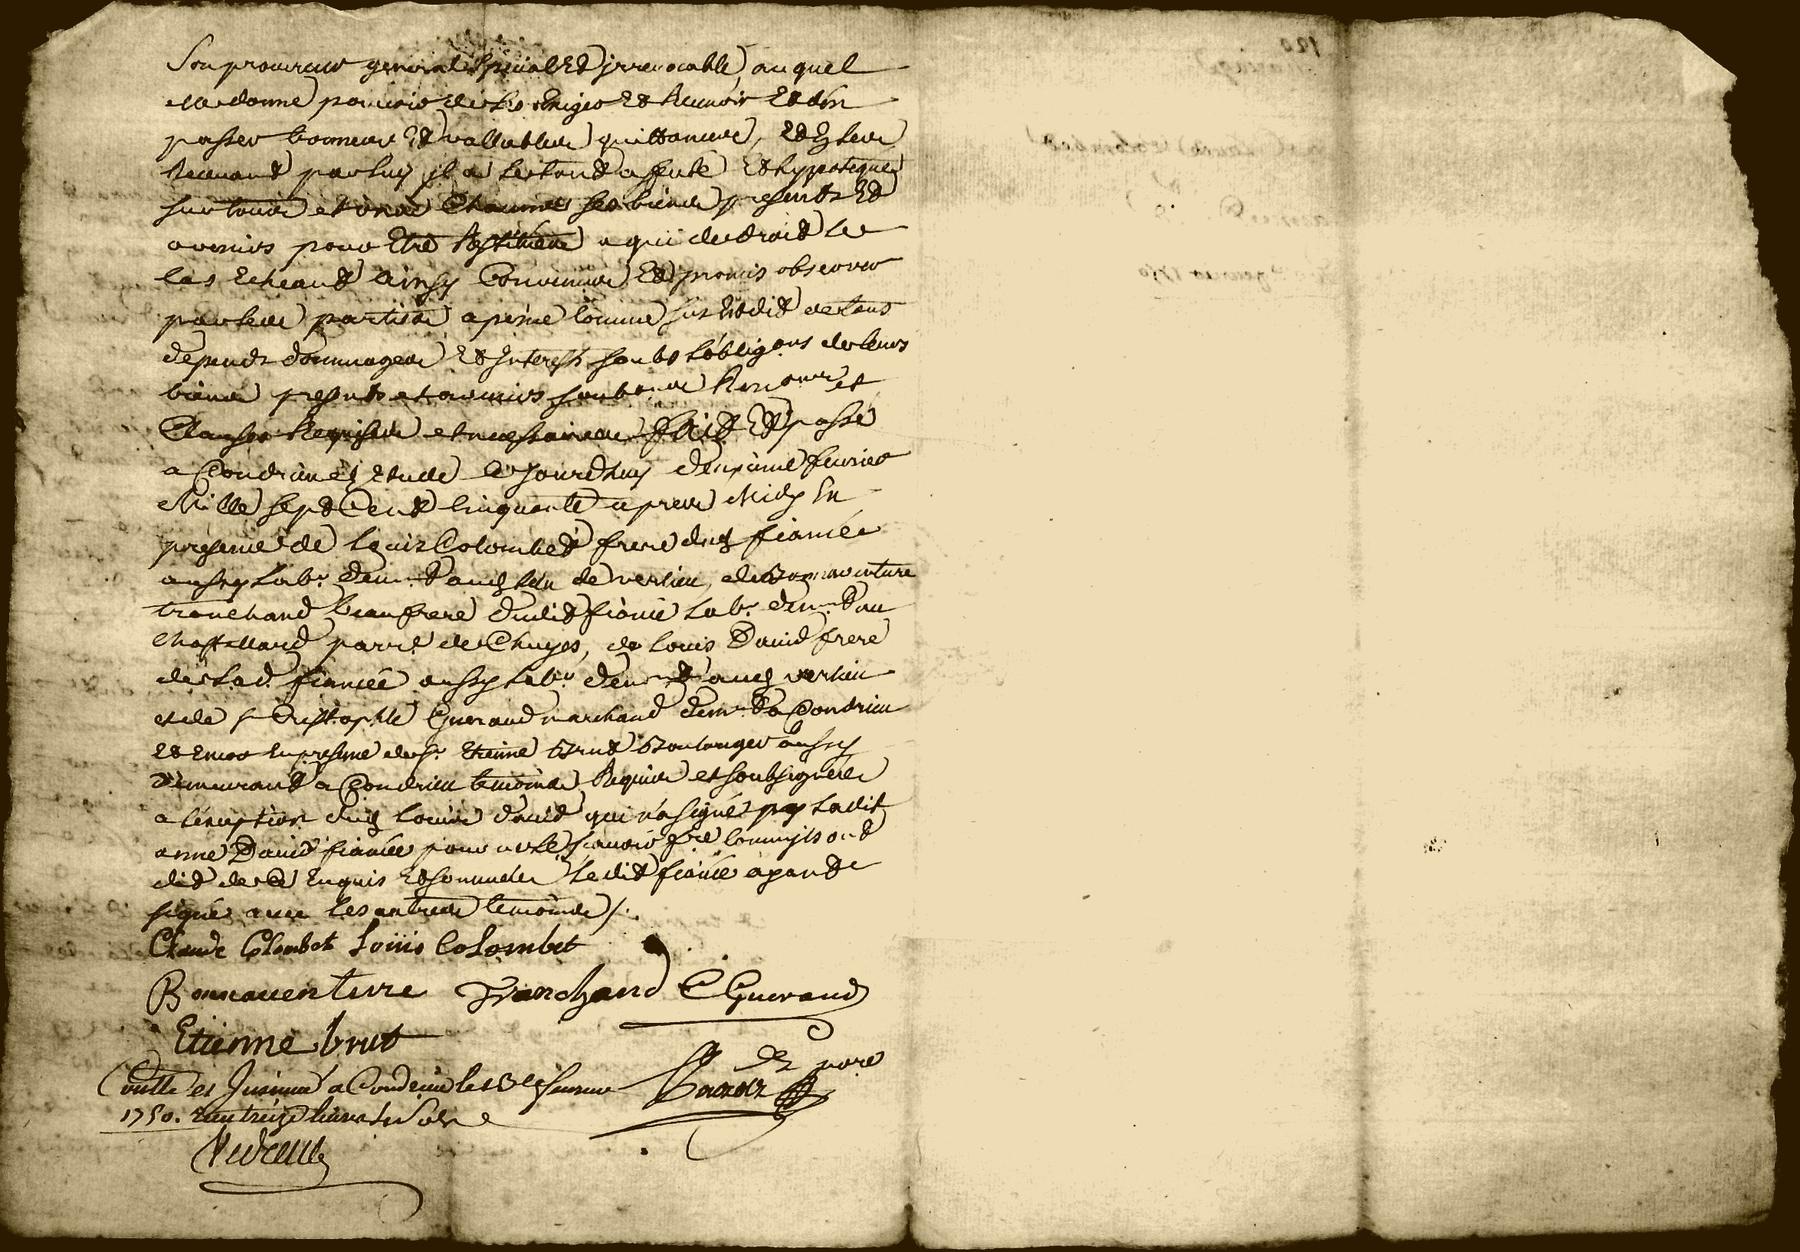 Son procureur general special Et irrevocable, auquel
elle donne pouvoir de les Exiger Et Recevoir Et d'en
passer bonnes Et vallables quittances, Et Iceux
Recevant par luy il a les tout affecté Et hypotequé
sur tous et uns Chacuns ses biens presents Et
avenirs pour Etre Restitués a qui de droit Le
Cas Echeant Ainsy Convenu Et promis observer
par les parties a peine Comme sus Est dit de tous
depends dommages Et Interests soubs l'obligons de leurs
biens presents et avenirs soubs Renonces et
Clauses Requises et necessaires fait Et passé
a Condrieu Etude Ce Jourdhuy deuxieme fevrier
Mille sept Cent Cinquante apres Midy En
presence de Louis Colombet frere dud fiancé
aussy labr demt aud lieu de verlieu, de Bonnaventure
tranchand beaufrere dudit fiancé labr demt au
Chastellard parre de Chuyes, de Louis David frere
de lad fiancée aussy labr demt aud verlieu
et de sr Cristophle Gueraud marchand demt a Condrieu
Et Encor En presence de sr Etienne Brut Boulanger aussy
demeurant a Condrieu temoins Requis et soubsignés
a l'exception dud Louis David qui n'a signé ny ladit
anne David fiancée pour ne le sçavoir fre Comm'ils ont
dit de Ce Enquis Et sommés Ledit fiancé ayant
signé avec les autres temoins /.
Claude Colombet Louis Colombet
Bonnaventure Tranchand C Gueraud
Etienne brut
Contlle et Insinué a Condrieu le fevrier
1750. Reçu treize livres